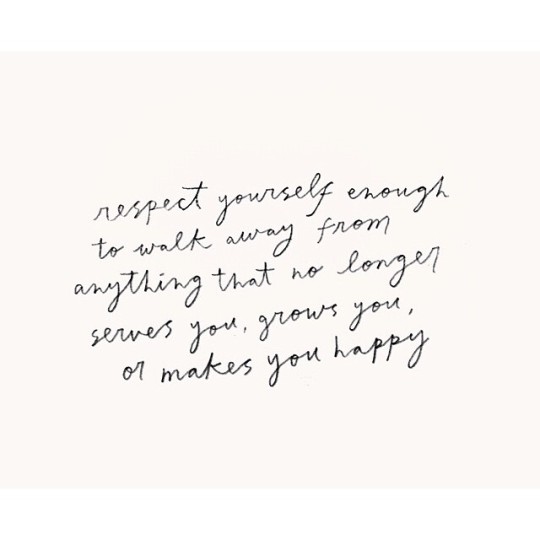 respect yourself enough
to walk away from
anything that no longer
serves you, grows you,
or makes you happy